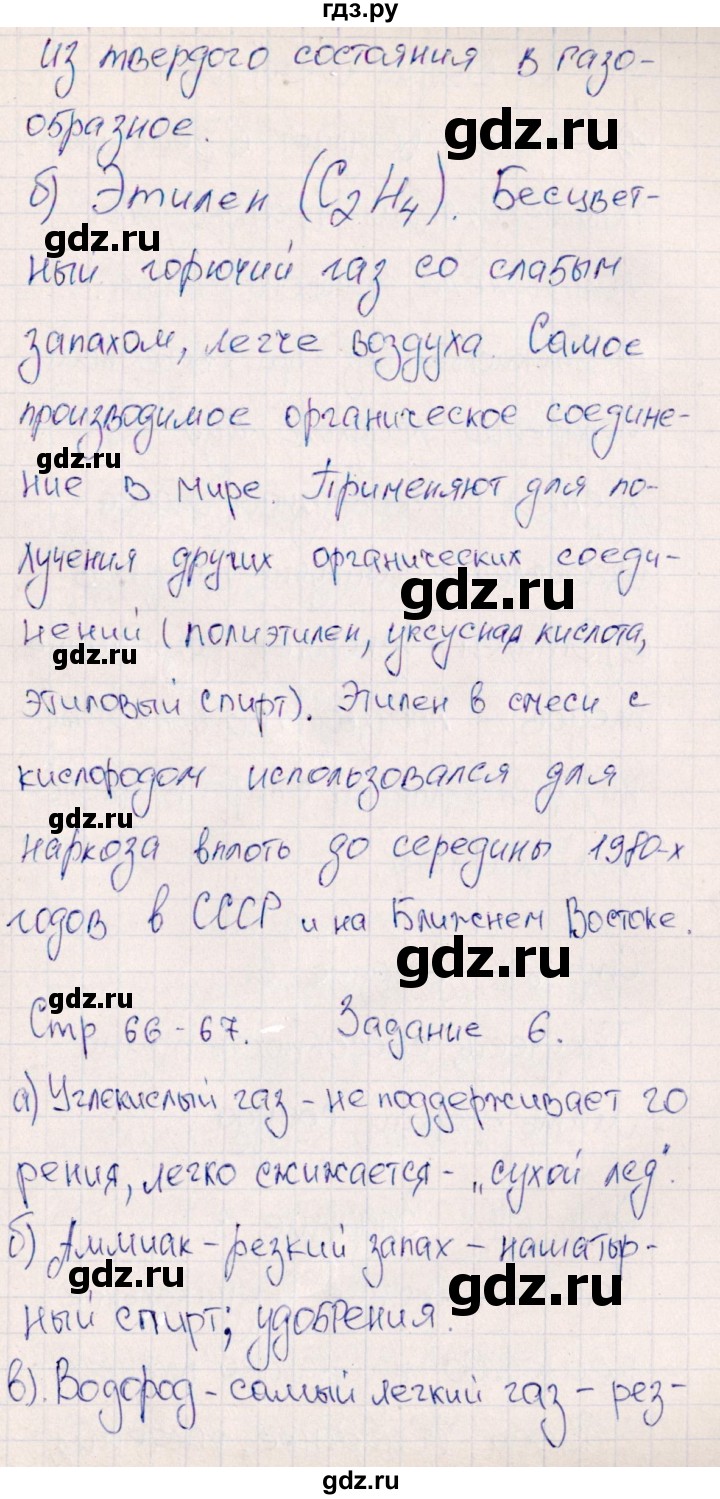 гдз.ру
из твердого состояния в газо-
образное.
gdz.ru
б) Этилен (C₂H₄). Бесцвет-
gdz.ru
ный горючий газ со слабым
запахом, легче воздуха. Самое
производимое органическое соедине-
gdz.ru
ние в мире. Применяют для по-
лучения других органических соеди-
gdz.ru
нений (полиэтилен, уксусная кислота,
gdz.ru
этиловый спирт). Этилен в смеси с
кислородом использовался для
gdz.ru
наркоза вплоть до середины 1980-х
годов в СССР и на Ближнем Востоке.
gdz.ru
gdz.ru
Стр 66-67. Задание 6.
а) Углекислый газ - не поддерживает го
рения, легко сжижается - „сухой лед".
б) Аммиак - резкий запах - нашатыр-
gdz.ru
gdz.ru
ный спирт; удобрения.
в). Водород - самый легкий газ - рез-
gdz.ru